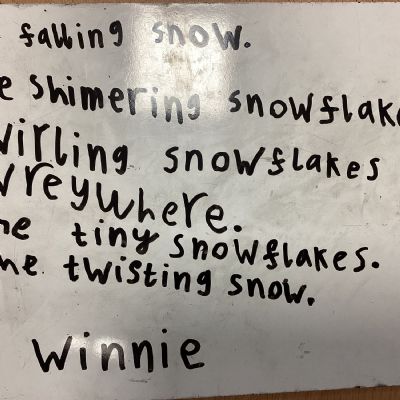 falling snow.
e shimering snowflake
wirling snowflakes
vreywhere.
he tiny snowflakes.
he twisting snow.
Winnie